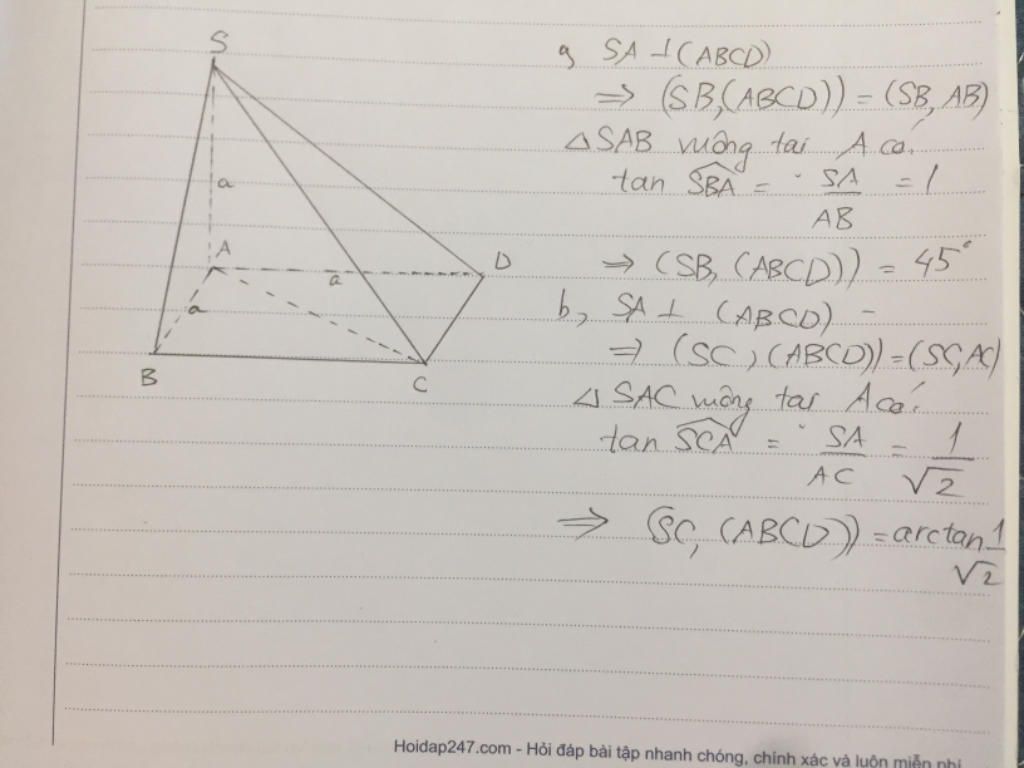 S
a
A
a
D
a
B
C
a, SA ⊥ (ABCD)
⇒ (SB, (ABCD)) = (SB, AB)
△ SAB vuông tại A có:
tan SBA = SA/AB = 1
⇒ (SB, (ABCD)) = 45°
b, SA ⊥ (ABCD)
⇒ (SC, (ABCD)) = (SC, AC)
△ SAC vuông tại A có:
tan SCA = SA/AC = 1/√2
⇒ (SC, (ABCD)) = arctan 1/√2
Hoidap247.com - Hỏi đáp bài tập nhanh chóng, chính xác và luôn miễn phí